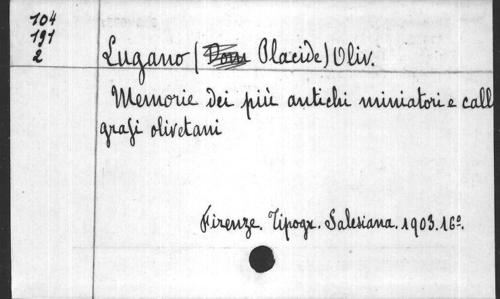 104
191
2
Lugano (Dom Placide) Oliv.
Memorie dei più antichi miniatori e call
grafi olivetani
Firenze. Tipogr. Salesiana. 1903. 16º.